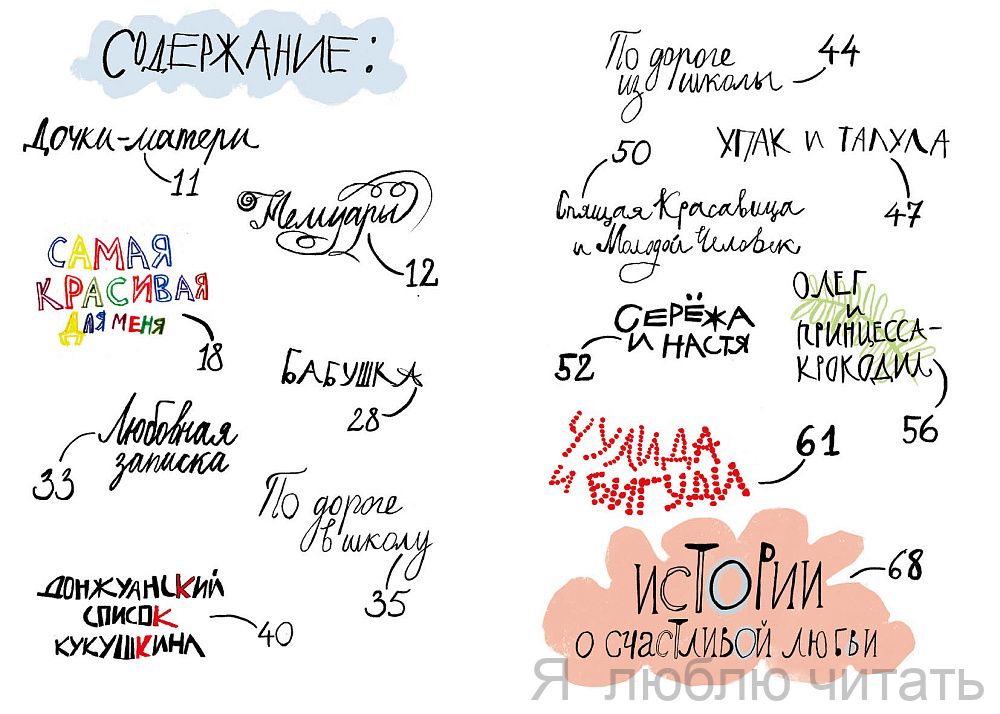 СОДЕРЖАНИЕ:
Дочки-матери
11
Мемуары
12
САМАЯ
КРАСИВАЯ
ДЛЯ МЕНЯ
18
БАБУШКА
28
Любовная
записка
33
По дороге
в школу
35
ДОНЖУАНСКИЙ
СПИСОК
КУКУШКИНА
40
По дороге
из школы
44
УПАК И ТАЛУЛА
47
50
Спящая Красавица
и Молодой Человек
СЕРЁЖА
И НАСТЯ
52
ОЛЕГ
И
ПРИНЦЕССА-
КРОКОДИЛ
56
ЧУЛИДА
И БИГУДЛА
61
ИСТОРИИ
О СЧАСТЛИВОЙ ЛЮБВИ
68
Я люблю читать